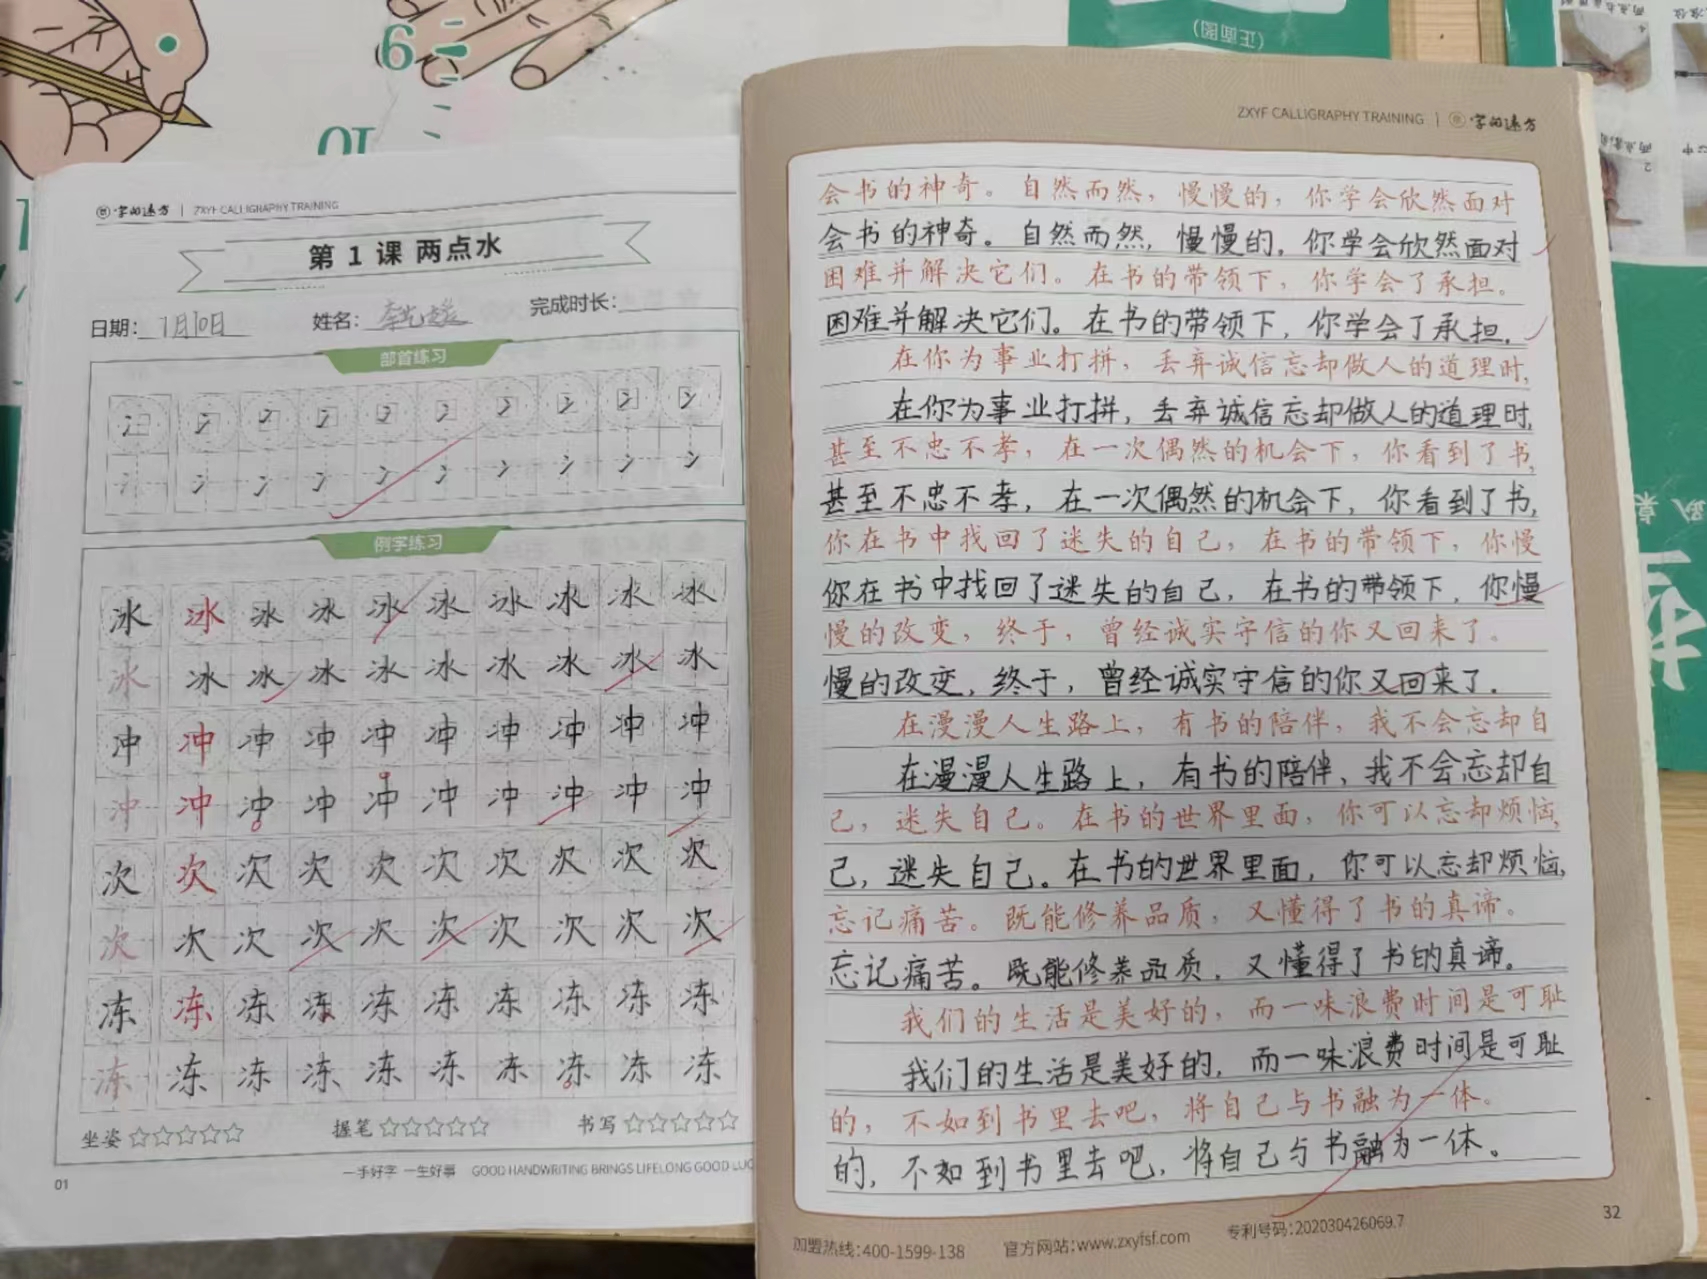 9
10
(正面图)
字的远方 | ZXYF CALLIGRAPHY TRAINING
第 1 课 两点水
日期: 7月10日 姓名: 完成时长:
部首练习
冫 冫 冫 冫 冫 冫 冫 冫 冫 冫
冫 冫 冫 冫 冫 冫 冫 冫 冫 冫
例字练习
冰 冰 冰 冰 冰 冰 冰 冰 冰 冰
冰 冰 冰 冰 冰 冰 冰 冰 冰 冰
冲 冲 冲 冲 冲 冲 冲 冲 冲 冲
冲 冲 冲 冲 冲 冲 冲 冲 冲 冲
次 次 次 次 次 次 次 次 次 次
次 次 次 次 次 次 次 次 次 次
冻 冻 冻 冻 冻 冻 冻 冻 冻 冻
冻 冻 冻 冻 冻 冻 冻 冻 冻 冻
坐姿☆☆☆☆☆ 握笔☆☆☆☆☆ 书写☆☆☆☆☆
一手好字 一生好事 GOOD HANDWRITING BRINGS LIFELONG GOOD LUC
01
ZXYF CALLIGRAPHY TRAINING | 字的远方
会书的神奇。自然而然，慢慢的，你学会欣然面对
会书的神奇。自然而然，慢慢的，你学会欣然面对
困难并解决它们。在书的带领下，你学会了承担。
困难并解决它们。在书的带领下，你学会了承担．
在你为事业打拼，丢弃诚信忘却做人的道理时，
在你为事业打拼，丢弃诚信忘却做人的道理时，
甚至不忠不孝，在一次偶然的机会下，你看到了书，
甚至不忠不孝，在一次偶然的机会下，你看到了书，
你在书中找回了迷失的自己，在书的带领下，你慢
你在书中找回了迷失的自己，在书的带领下．你慢
慢的改变，终于，曾经诚实守信的你又回来了。
慢的改变，终于，曾经诚实守信的你又回来了．
在漫漫人生路上，有书的陪伴，我不会忘却自
在漫漫人生路上，有书的陪伴，我不会忘却自
己，迷失自己。在书的世界里面，你可以忘却烦恼，
己，迷失自己。在书的世界里面，你可以忘却烦恼，
忘记痛苦。既能修养品质，又懂得了书的真谛。
忘记痛苦。既能修养品质．又懂得了书的真谛。
我们的生活是美好的，而一味浪费时间是可耻
我们的生活是美好的，而一味浪费时间是可耻
的，不如到书里去吧，将自己与书融为一体。
的，不如到书里去吧，将自己与书融为一体。
32
加盟热线:400-1599-138 官方网站:www.zxyfsf.com 专利号码:202030426069.7